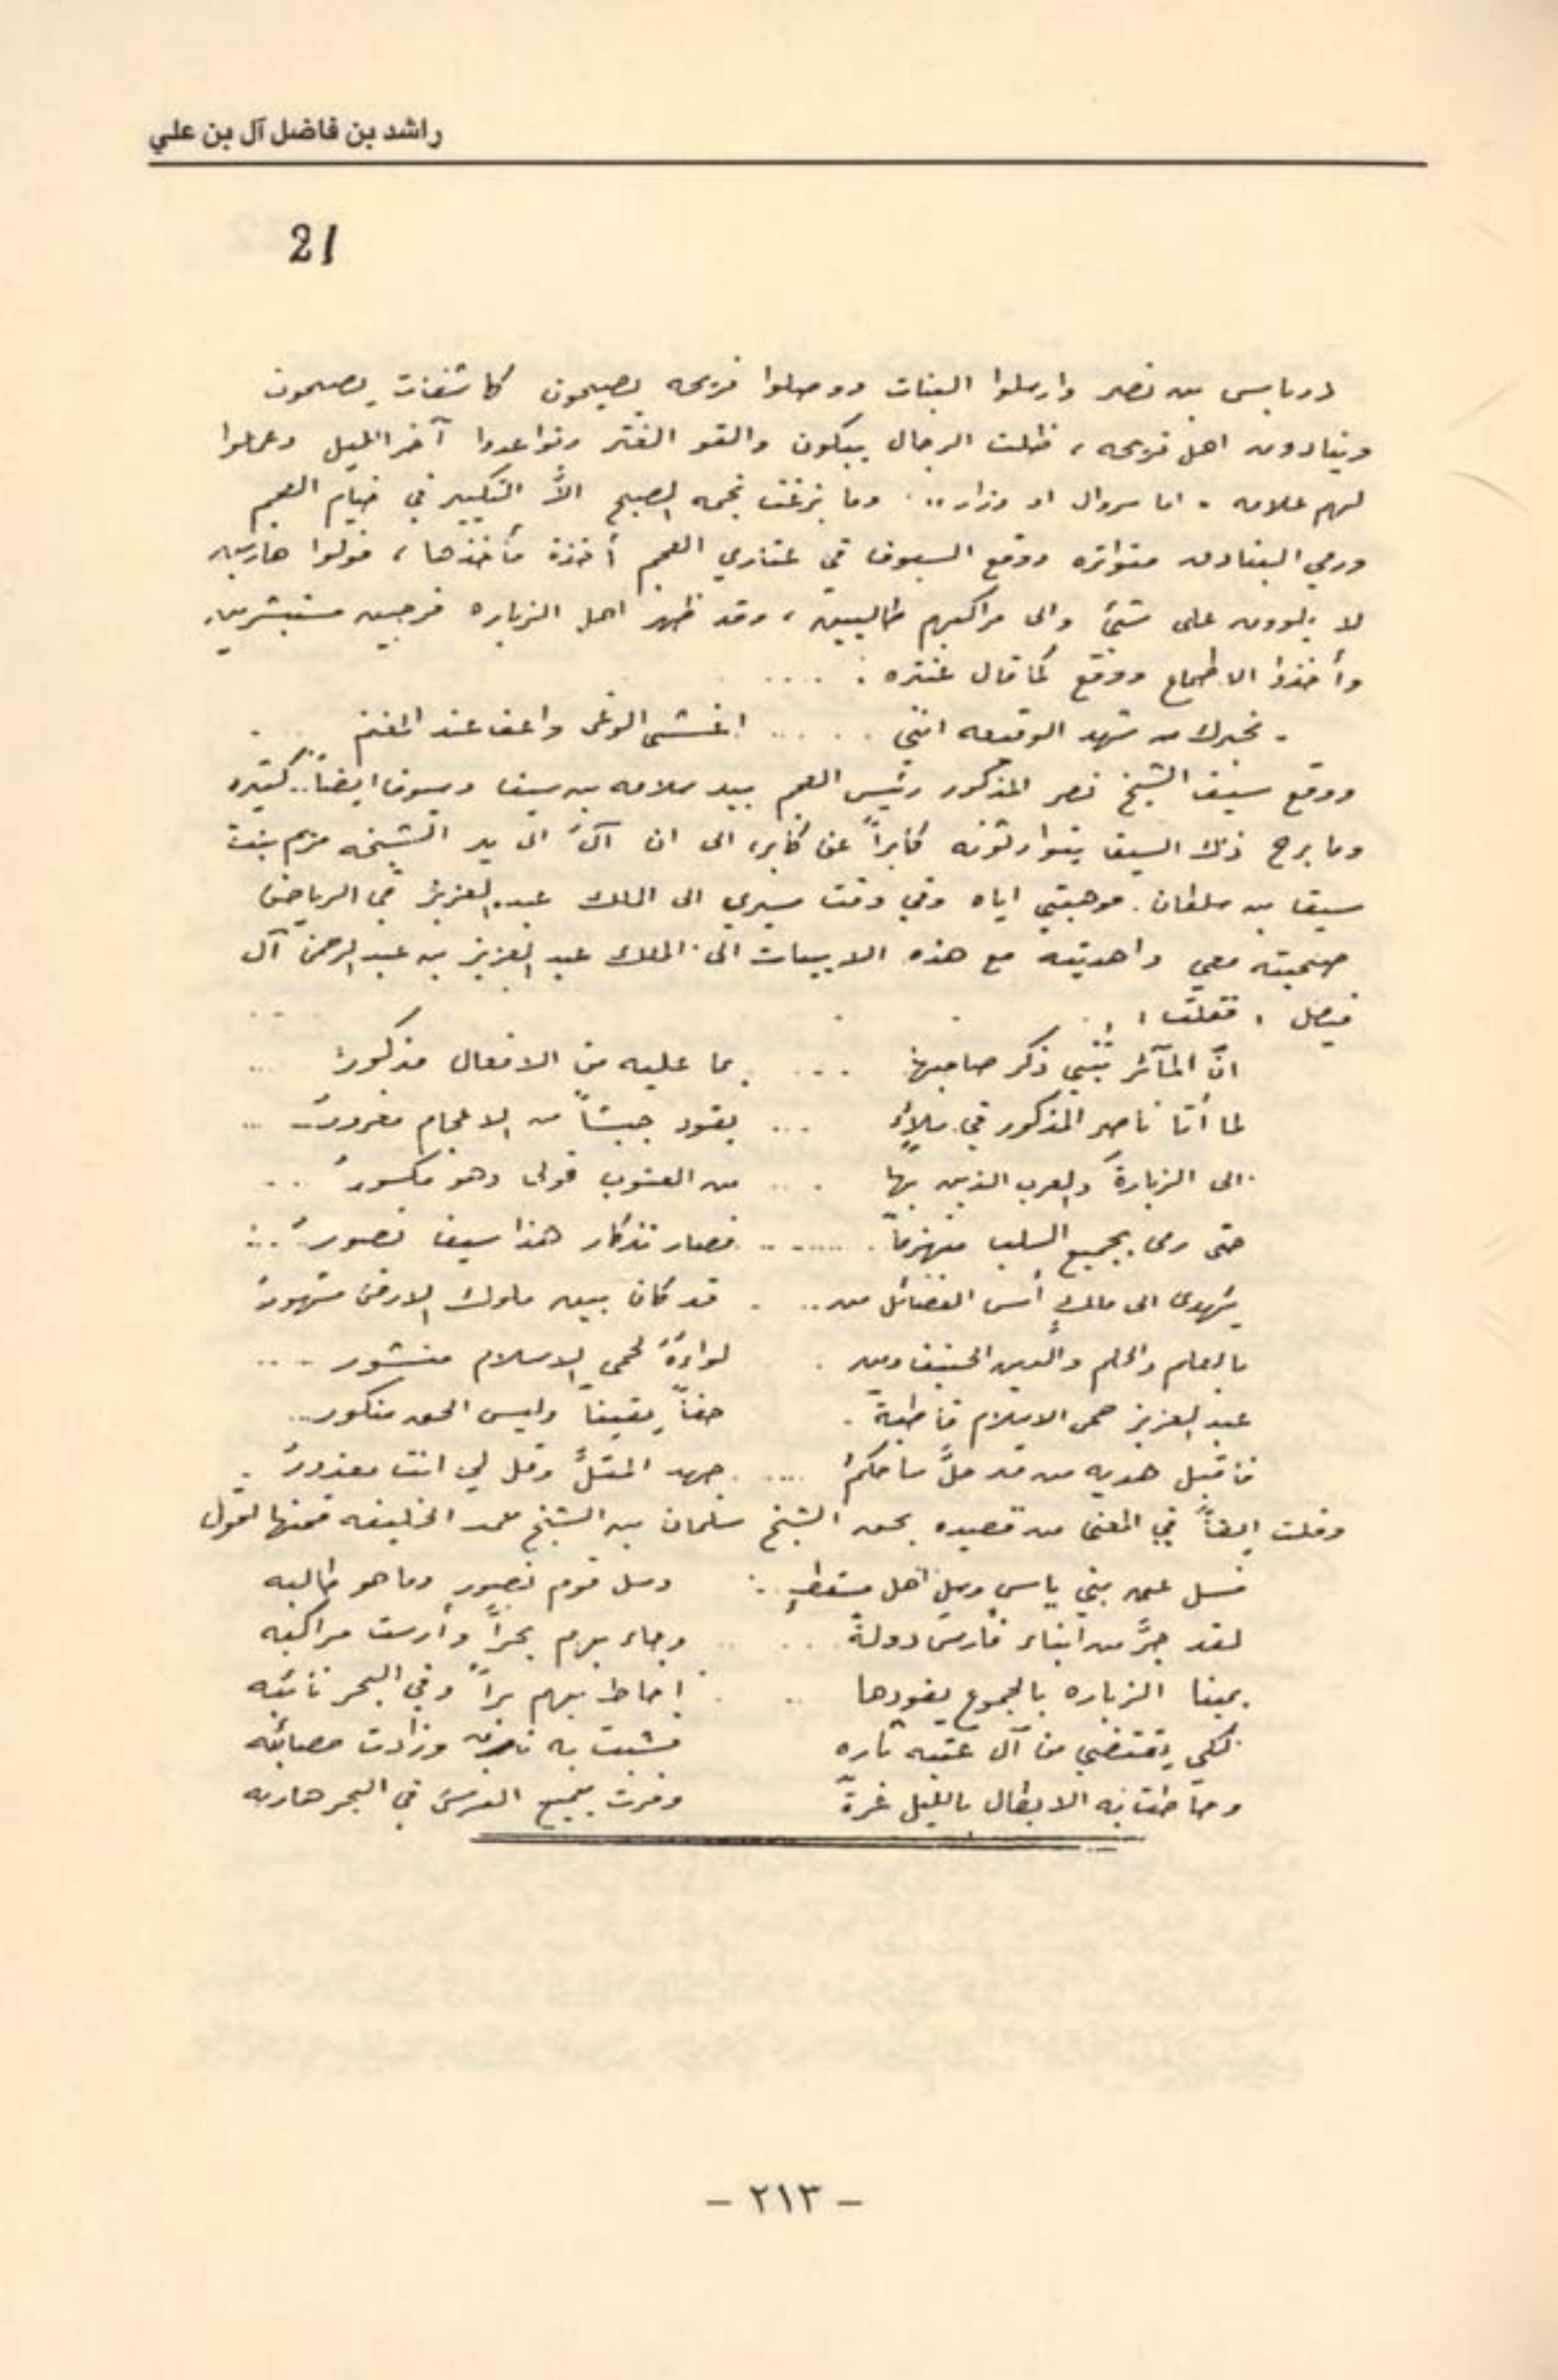 راشد بن فاضل آل بن علي
21
درباس بن نصر وارسلوا البنات ووصلوا فريحه يصيحون كاشفات يصيحون
وينادون اهل فريحه، فظلت الرجال يبكون والقو الغتر وتواعدوا آخر الليل وعملوا
لهم علامه - اما سروال او وزار .. وما بزغت نجمه الصبح الاَّ التكبير في خيام العجم
ورمي البنادق متواتره ووقع السيوف في العجم أخذة مأخذها، فولوا هاربين
لا يلوون على شيئ والى مراكبهم طالبين، وقد ظهر اهل الزباره فرحين مستبشرين
وأخذوا الاطماع ووقع كما قال عنتره : ....
- يخبرك من شهد الوقيعه انني ..... اغشى الوغى واعف عند المغنم
ووقع سيف الشيخ نصر المذكور رئيس العجم بيد سلامه بن سيف وسيوف ايضاً.. كثيره
وما برح ذلك السيف يتوارثونه كابراً عن كابر، الى ان آلَ الى يد الشيخه مريم بنت
سيف بن سلطان. فوهبتني اياه وفي وقت سيري الى الملك عبد العزيز في الرياض
صحبته معي واهديته مع هذه الابيات الى الملك عبد العزيز بن عبد الرحمن آل
فيصل ، فقلت ،
انّ المآثر تُنبي ذكر صاحبها ... بما عليه من الافعال مذكورُ ...
لما أتا ناصر المذكور في ملاءٍ ... يقود جيشاً من الاعجام مغرورُ ...
الى الزبارة والعرب الذين بها ... من العتوب فولى وهو مكسورُ ...
حتى رمى بجميع السلب منهزماً ........ فصار تذكار هذا سيف نصورُ ..
يُهدى الى ملكٍ أسس الفضائل من .. قد كان بين ملوك الارض مشهورُ
بالعلم والحلم والدين الحنيف ومن . لواءهُ لحمى الاسلام منشور ...
عبد العزيز حمى الاسلام قاطبةً . حقاً يقيناً وليس الحق منكور..
فاقبل هديه من قد حلَّ ساحكمُ .... جهد المقلَّ وقل لي انت معذورُ .
وقلت ايضاً في المعنى من قصيده بحق الشيخ سلمان بن الشيخ حمد الخليفه فمنها اقول
فسل عن بني ياسٍ وسل اهل مسقطٍ .. وسل قوم نصورٍ وما هو طالبه
لقد جرَّ من ابناء فارس دولةً .... وجاء بهم بحراً وأرست مراكبه
بمينا الزباره بالجموع يقودها .. احاط بهم براً وفي البحر نائبه
لكي يقتضي من آل عتبه ثاره فشبت به نارٌ وزادت مصائبه
وحاطت به الابطال بالليل غرةً وفرت جميع الفرس في البحر هاربه
- ٢١٣ -